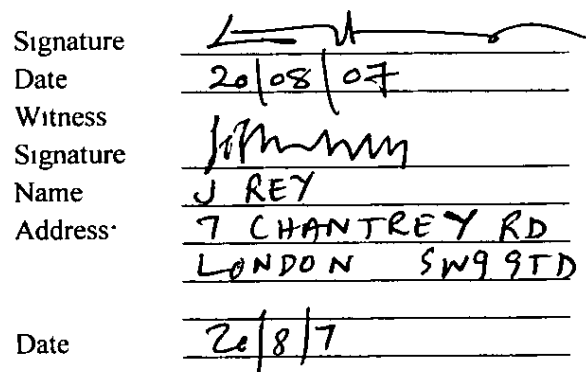 Signature
Date 20/08/07
Witness
Signature
Name J REY
Address: 7 CHANTREY RD
LONDON SW9 9TD
Date 20/8/7